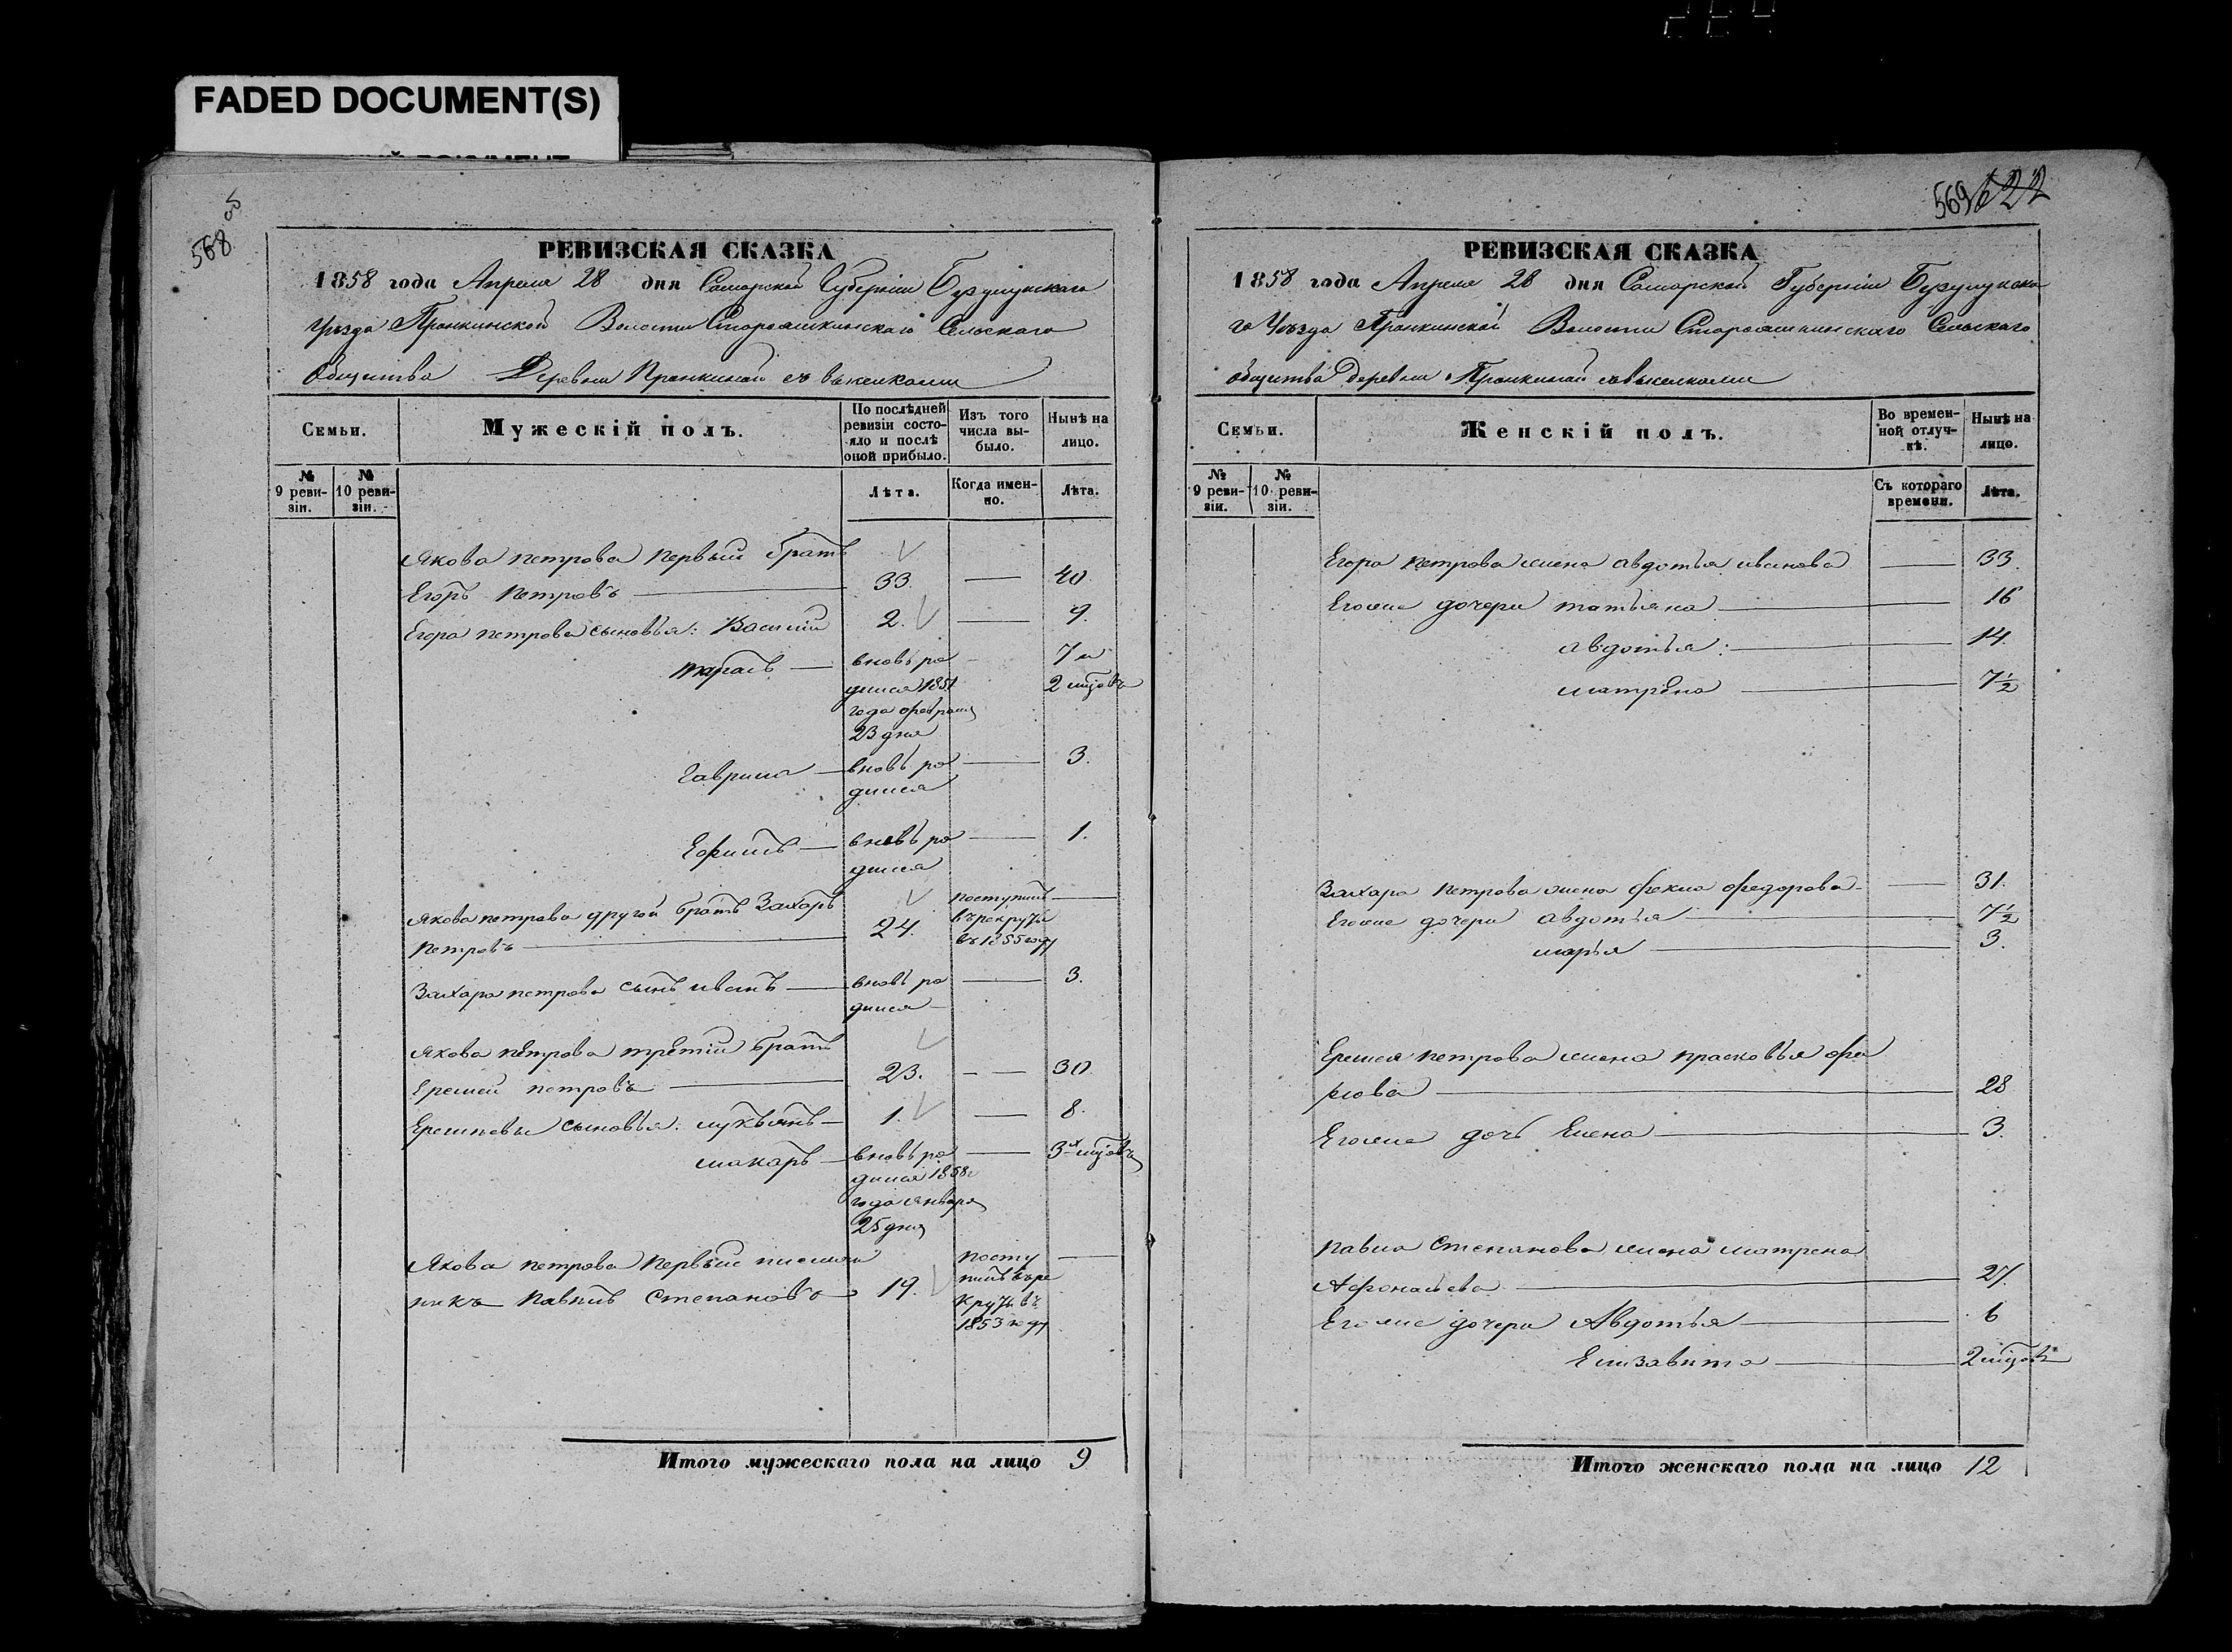 FADED DOCUMENT(S)
568
РЕВИЗСКАЯ СКАЗКА
1858 года Апреля 28 дня Самарской Губернiи Бузулуцкаго
Уѣзда Пронкинской Волости Староашкинскаго Сельскаго
Общества Деревни Пронкиной съ выселками
Семьи.
Мужескiй полъ.
По послѣдней ревизiи состояло и послѣ оной прибыло.
Изъ того числа выбыло.
Нынѣ на лицо.
№ 9 ревизiи.
№ 10 ревизiи.
Лѣта.
Когда именно.
Лѣта.
Якова петрова первый братъ
Егоръ петровъ 33. 40
Егора петрова сыновья: Василiй 2. 9.
тарасъ вновь ро 7 и
дился 1851 2 мцовъ
года февраля
23 дня
Гаврила вновь ро 3.
дился
Ефимъ вновь ро 1.
дился
Якова петрова другой братъ Захаръ поступилъ
петровъ 24. въ рекруты
въ 1855 году
Захара петрова сынъ иванъ вновь ро 3.
дился
Якова петрова третiй братъ
Еремей петровъ 23. 30
Еремѣевы сыновья: лукьянъ 1. 8.
макаръ вновь ро 3х мцовъ
дился 1858
года января
25 дня
Якова петрова первый племян посту
никъ павилъ Степановъ 19. пилъ въ ре
круты въ
1853 году
Итого мужескаго пола на лицо 9
569 622
РЕВИЗСКАЯ СКАЗКА
1858 года Апреля 28 дня Самарской Губернiи Бузулуцка
го Уѣзда Пронкинской Волости Староашкинскаго Сельскаго
общества деревни Пронкиной съ выселками
Семьи.
Женскiй полъ.
Во временной отлучкѣ.
Нынѣ на лицо.
№ 9 ревизiи.
№ 10 ревизiи.
Съ котораго времени.
Лѣта.
Егора петрова жена авдотья иванова 33.
Егоже дочери татьяна 16
авдотья: 14.
матрена 7½
Захара петрова жена фекла федорова 31.
Егоже дочери авдотья 7½
марья 3.
Еремея петрова жена прасковья
28
Егоже дочь Елена 3.
павла Степанова жена матрена
Афонасьева 27.
Егоже дочери Авдотья 6
Елизавита 2 мцовъ
Итого женскаго пола на лицо 12